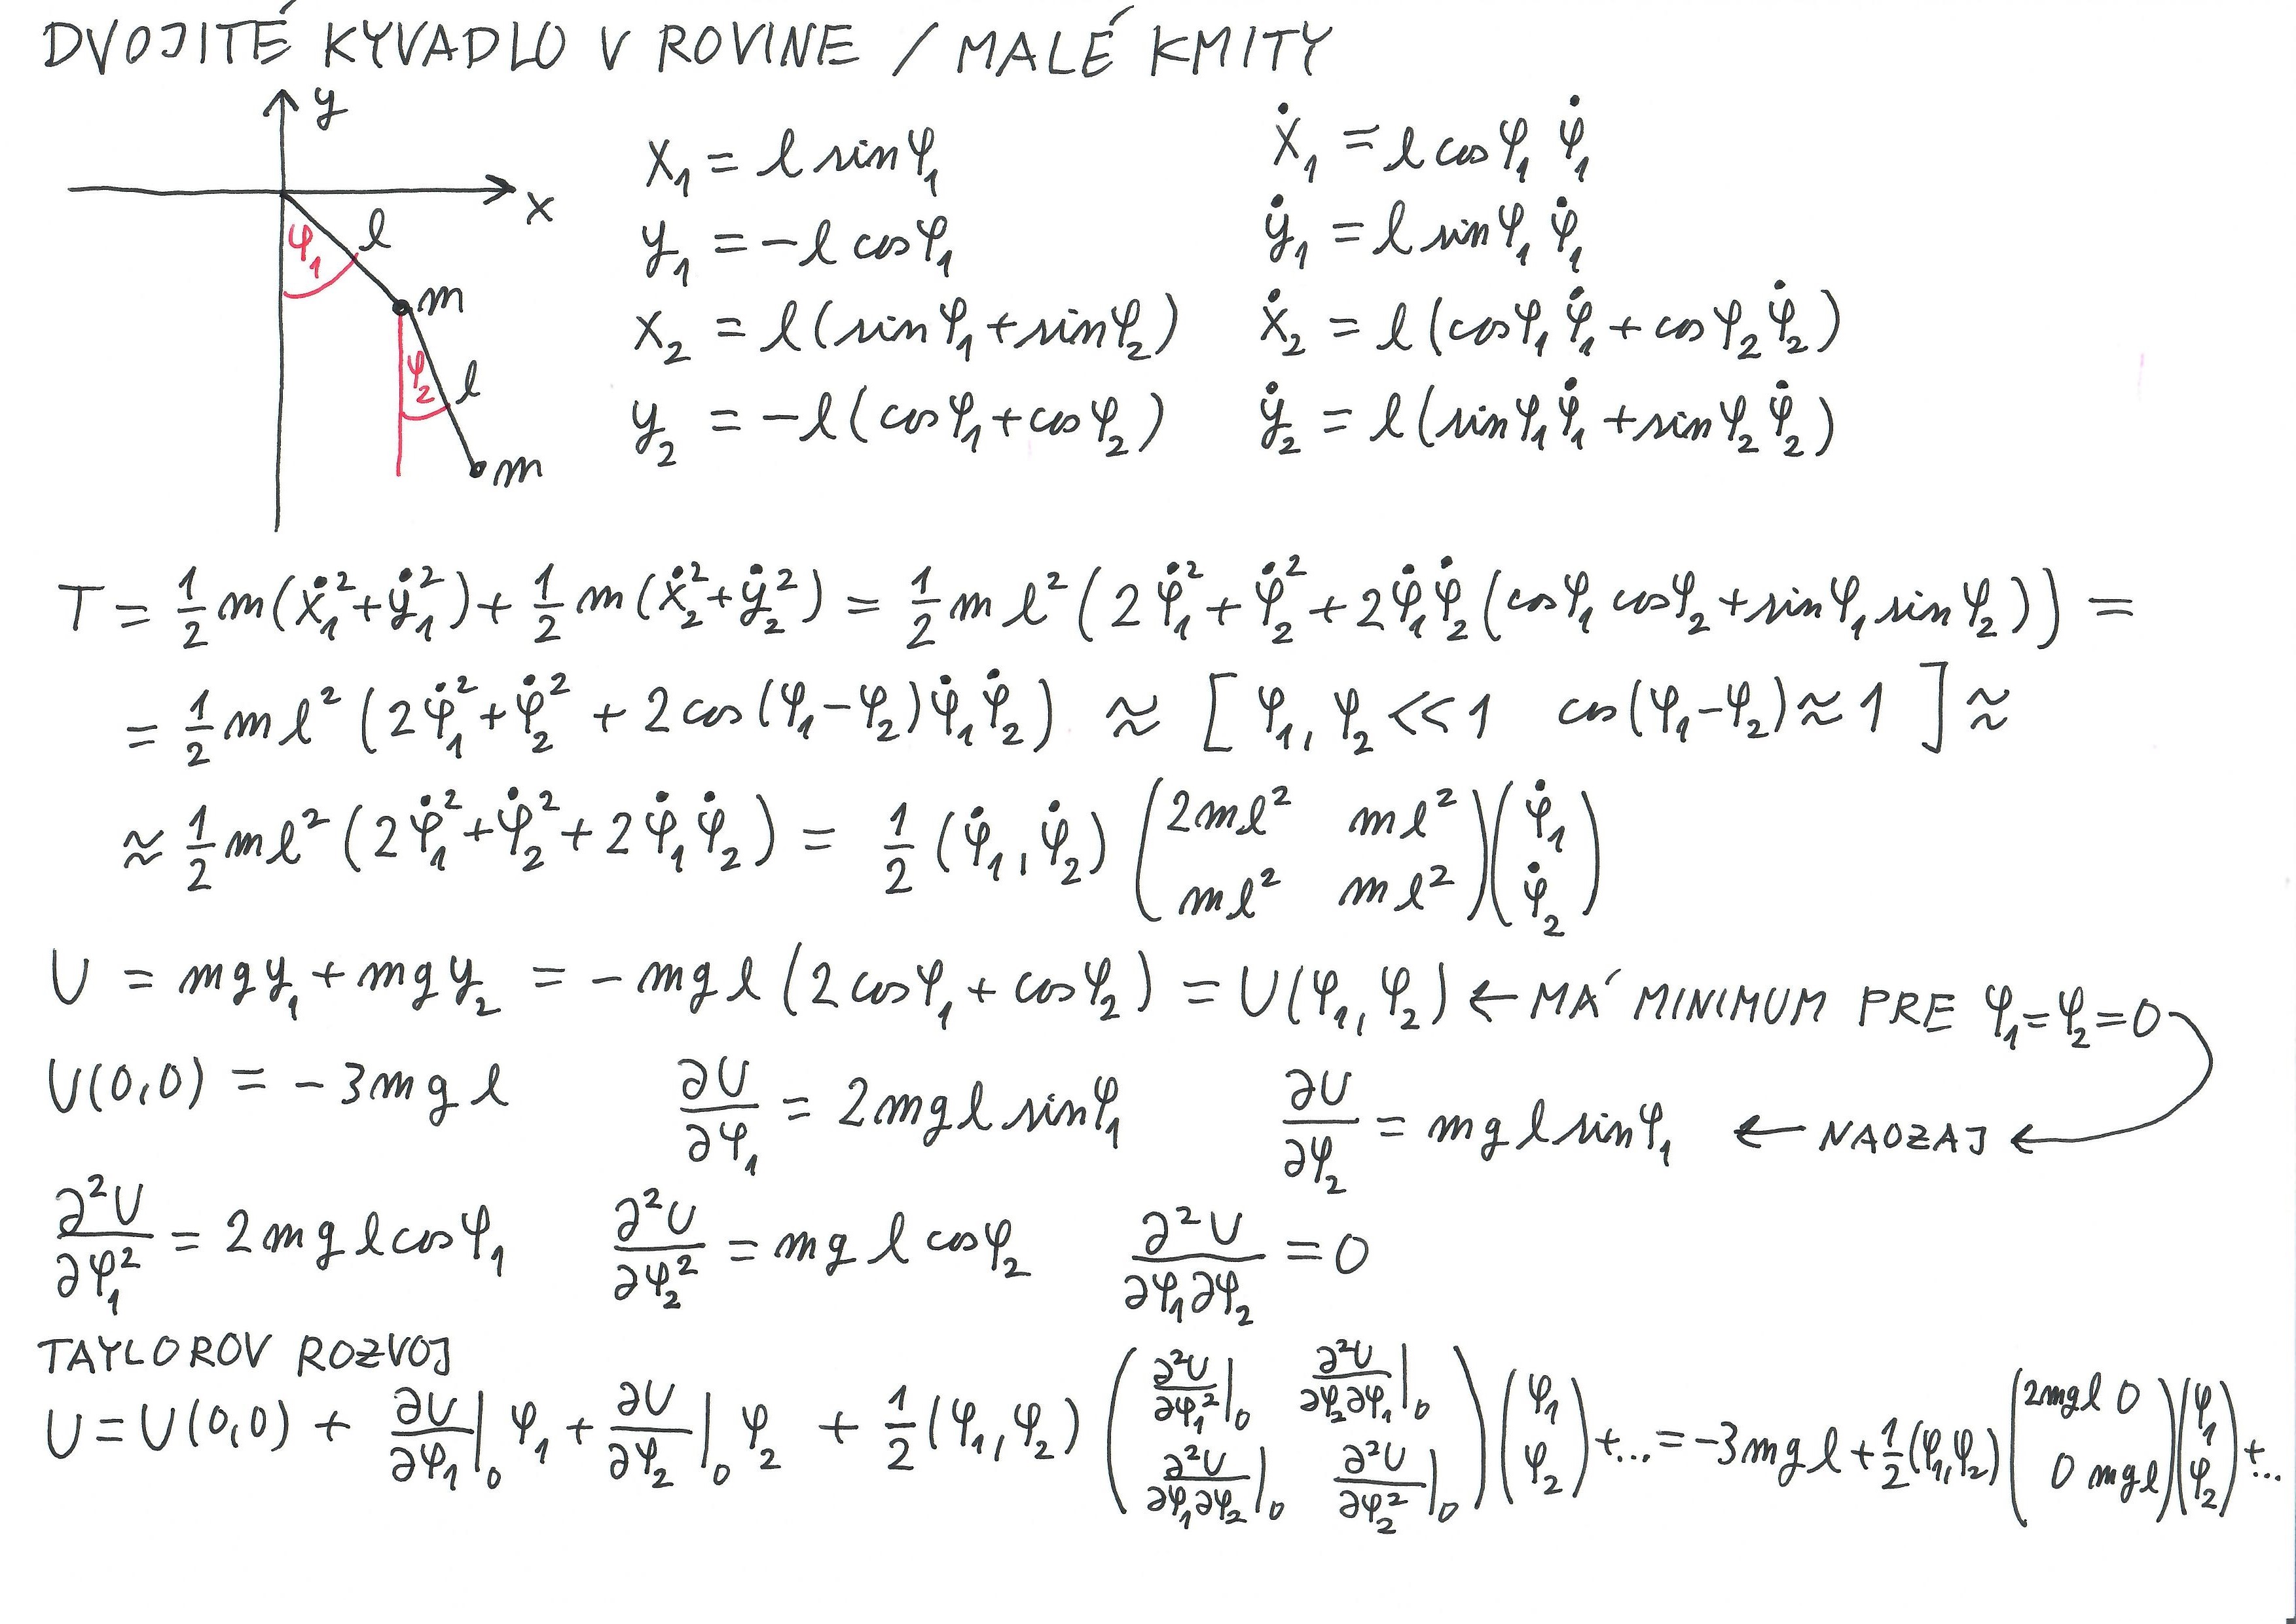 DVOJITÉ KYVADLO V ROVINE / MALÉ KMITY
y
x
φ₁ l
m
φ₂ l
m
x₁ = l sinφ₁ ẋ₁ = l cosφ₁ φ̇₁
y₁ = -l cosφ₁ ẏ₁ = l sinφ₁ φ̇₁
x₂ = l(sinφ₁+sinφ₂) ẋ₂ = l(cosφ₁φ̇₁+cosφ₂φ̇₂)
y₂ = -l(cosφ₁+cosφ₂) ẏ₂ = l(sinφ₁φ̇₁+sinφ₂φ̇₂)
T = 1/2 m(ẋ₁²+ẏ₁²)+1/2 m(ẋ₂²+ẏ₂²) = 1/2 m l²(2φ̇₁²+φ̇₂²+2φ̇₁φ̇₂(cosφ₁ cosφ₂+sinφ₁ sinφ₂)) =
= 1/2 m l² (2φ̇₁²+φ̇₂² + 2cos(φ₁-φ₂)φ̇₁φ̇₂) ≈ [φ₁, φ₂ << 1 cos(φ₁-φ₂) ≈ 1] ≈
≈ 1/2 ml² (2φ̇₁²+φ̇₂²+2φ̇₁φ̇₂) = 1/2 (φ̇₁, φ̇₂) (2ml² ml² ; ml² ml²)(φ̇₁ ; φ̇₂)
U = mgy₁ + mgy₂ = -mgl(2cosφ₁+cosφ₂) = U(φ₁,φ₂) ← MÁ MINIMUM PRE φ₁=φ₂=0
U(0,0) = -3mgl ∂U/∂φ₁ = 2mgl sinφ₁ ∂U/∂φ₂ = mgl sinφ₁ ← NAOZAJ ←
∂²U/∂φ₁² = 2mgl cosφ₁ ∂²U/∂φ₂² = mgl cosφ₂ ∂²U/∂φ₁∂φ₂ = 0
TAYLOROV ROZVOJ
U = U(0,0) + ∂U/∂φ₁|₀ φ₁ + ∂U/∂φ₂|₀ φ₂ + 1/2 (φ₁,φ₂) (∂²U/∂φ₁²|₀ ∂²U/∂φ₂∂φ₁|₀ ; ∂²U/∂φ₁∂φ₂|₀ ∂²U/∂φ₂²|₀)(φ₁ ; φ₂) +... = -3mgl + 1/2 (φ₁,φ₂) (2mgl 0 ; 0 mgl)(φ₁ ; φ₂) +...